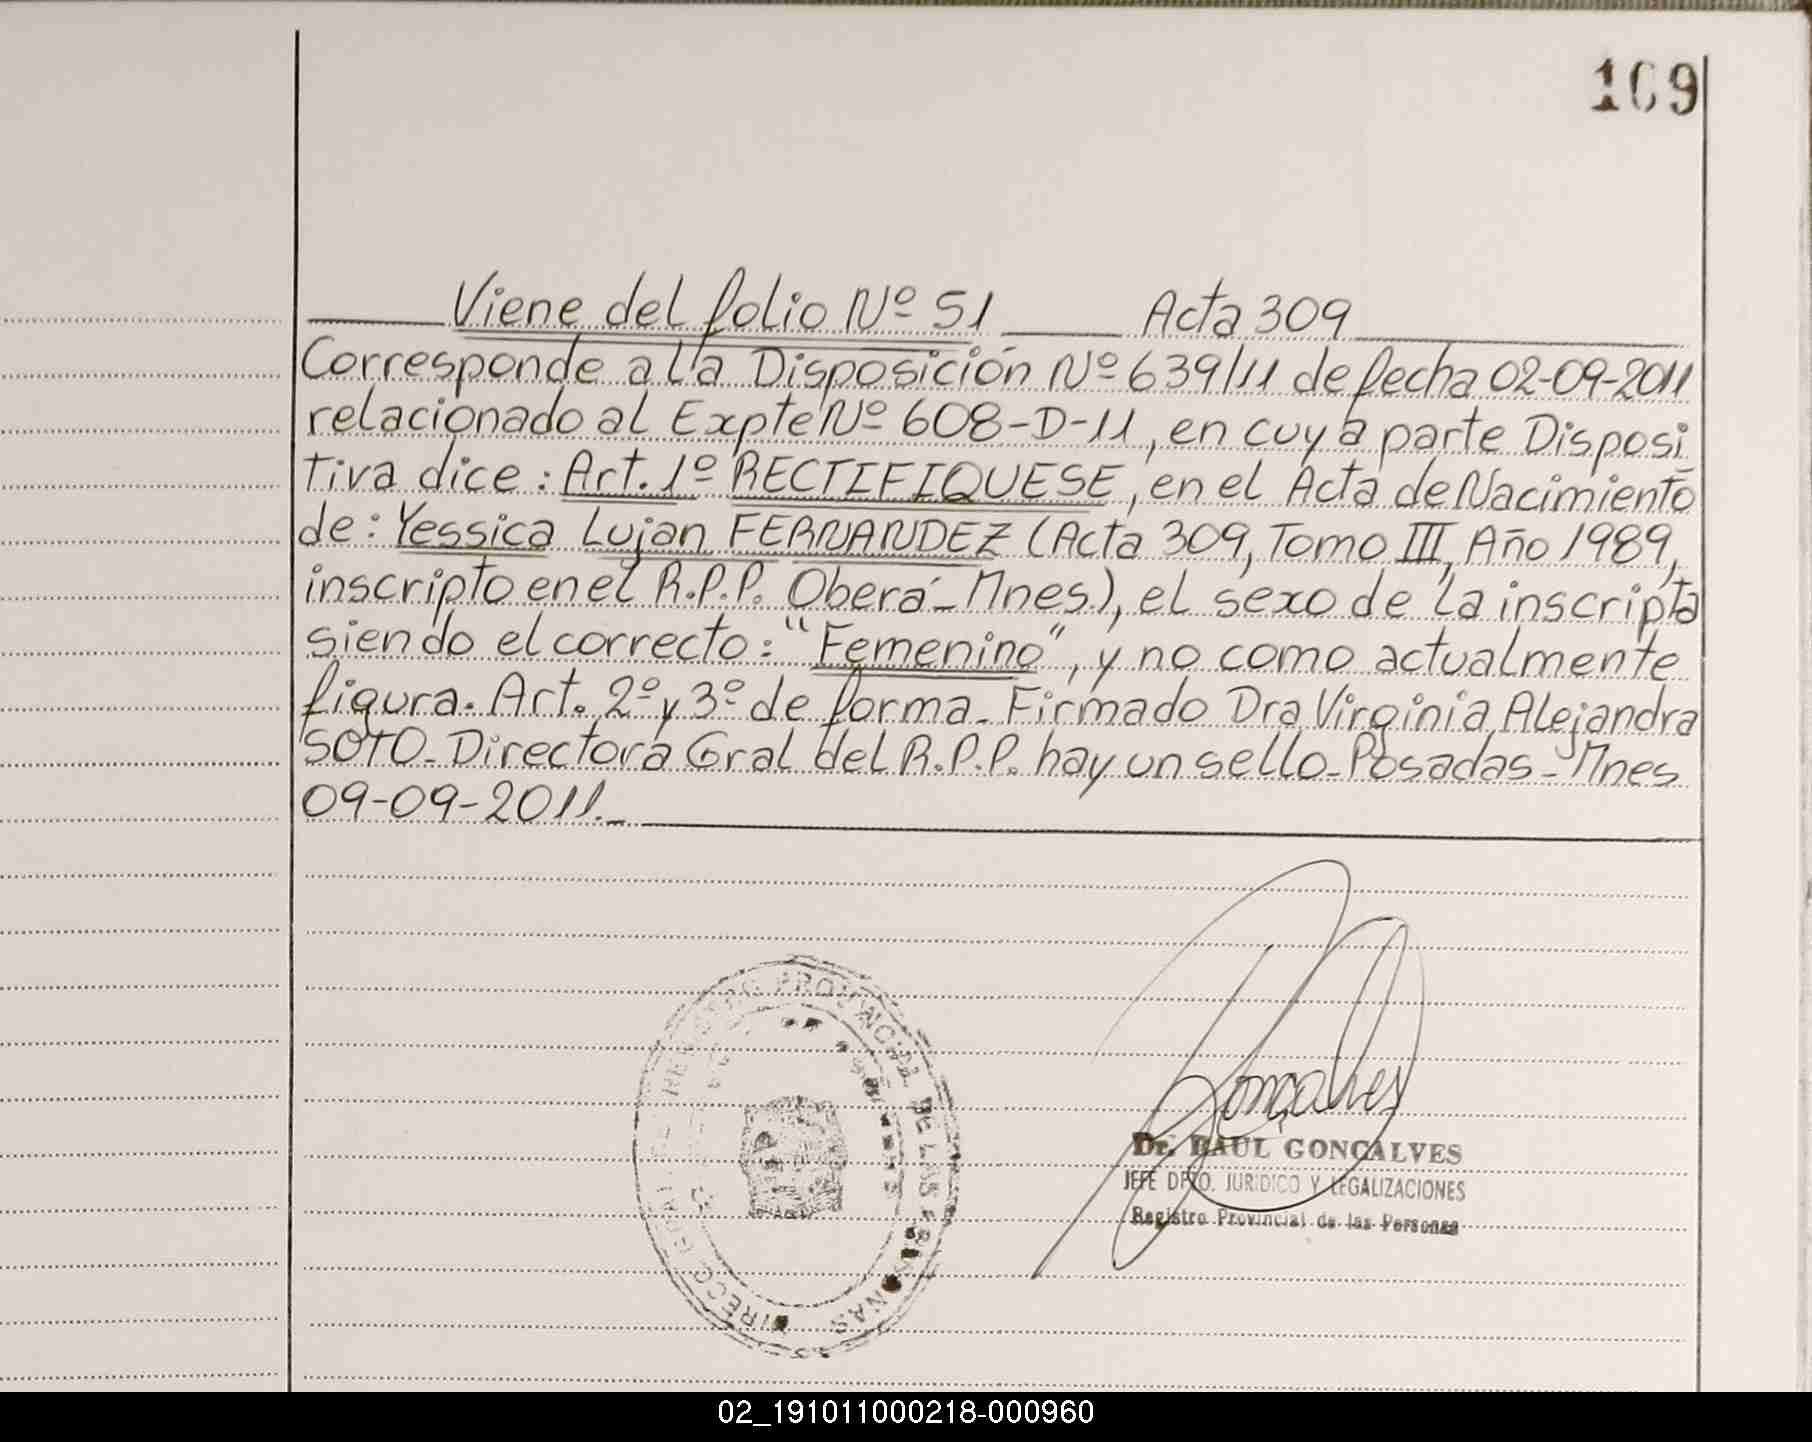 109
Viene del folio Nº 51 Acta 309
Corresponde a la Disposición Nº 639/11 de fecha 02-09-2011
relacionado al Expte Nº 608-D-11, en cuya parte Disposi
tiva dice: Art. 1º RECTIFIQUESE, en el Acta de Nacimiento
de: Yessica Lujan FERNANDEZ (Acta 309, Tomo III, Año 1989,
inscripto en el R.P.P. Oberá-Mnes), el sexo de la inscripta
siendo el correcto: "Femenino", y no como actualmente
figura. Art. 2º y 3º de forma. Firmado Dra Virginia Alejandra
SOTO. Directora Gral del R.P.P. hay un sello. Posadas-Mnes
09-09-2011.
REGISTRO PROVINCIAL DE LAS PERSONAS
DIRECC GRAL
Gonçalves
Dr. RAUL GONCALVES
JEFE DPTO. JURIDICO Y LEGALIZACIONES
Registro Provincial de las Personas
02_191011000218-000960